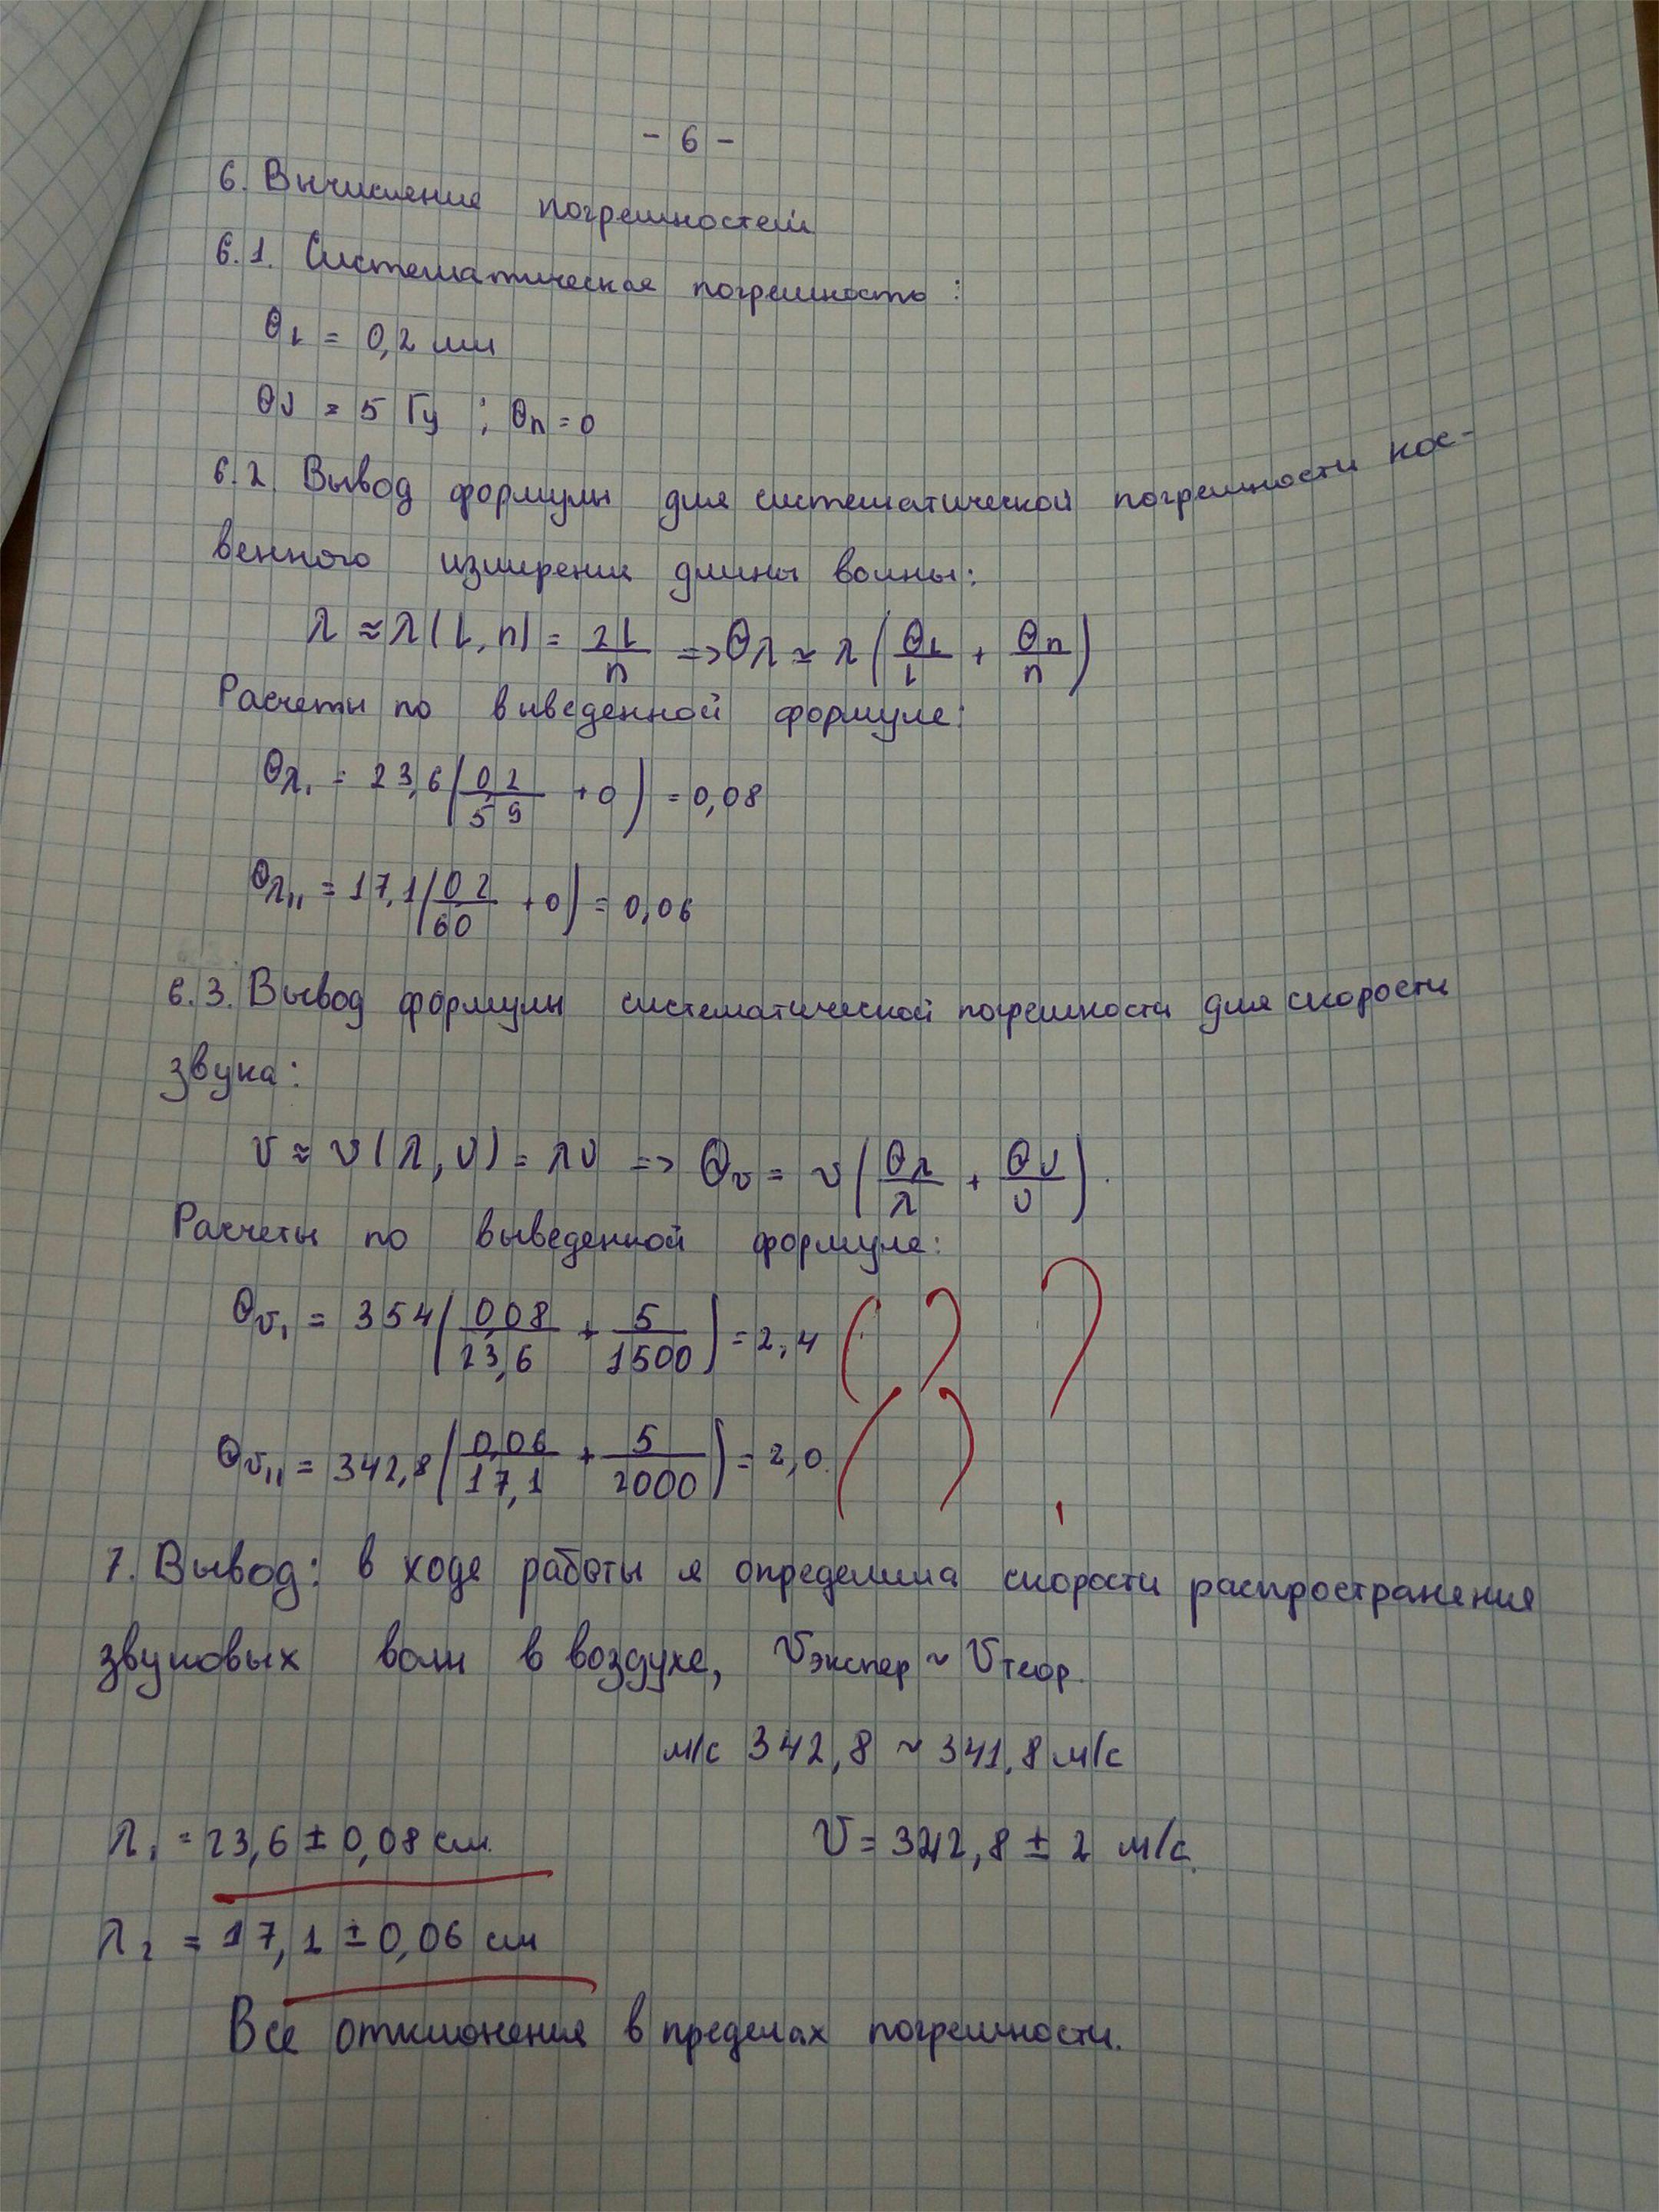 - 6 -
6. Вычисление погрешностей
6.1. Систематическая погрешность:
θL = 0,2 мм
θν = 5 Гц ; θn = 0
6.2. Вывод формулы для систематической погрешности кос-
венного измерения длины волны:
λ ≈ λ(L, n) = 2L/n => θλ ≃ λ(θL/L + θn/n)
Расчеты по выведенной формуле:
θλ₁ = 23,6(0,2/59 + 0) = 0,08
θλ₁₁ = 17,1(0,2/60 + 0) = 0,06
6.3. Вывод формулы систематической погрешности для скорости
звука:
v ≈ v(λ, ν) = λν => θv = v(θλ/λ + θν/ν).
Расчеты по выведенной формуле:
θv₁ = 354(0,08/23,6 + 5/1500) = 2,4 ( ) ?
θv₁₁ = 342,8(0,06/17,1 + 5/2000) = 2,0. ( )
7. Вывод: в ходе работы я определила скорости распространения
звуковых волн в воздухе, vэкспер ~ vтеор.
м/с 342,8 ~ 341,8 м/с
λ₁ = 23,6 ± 0,08 см. v = 342,8 ± 2 м/с.
λ₂ = 17,1 ± 0,06 см
Все отклонения в пределах погрешности.